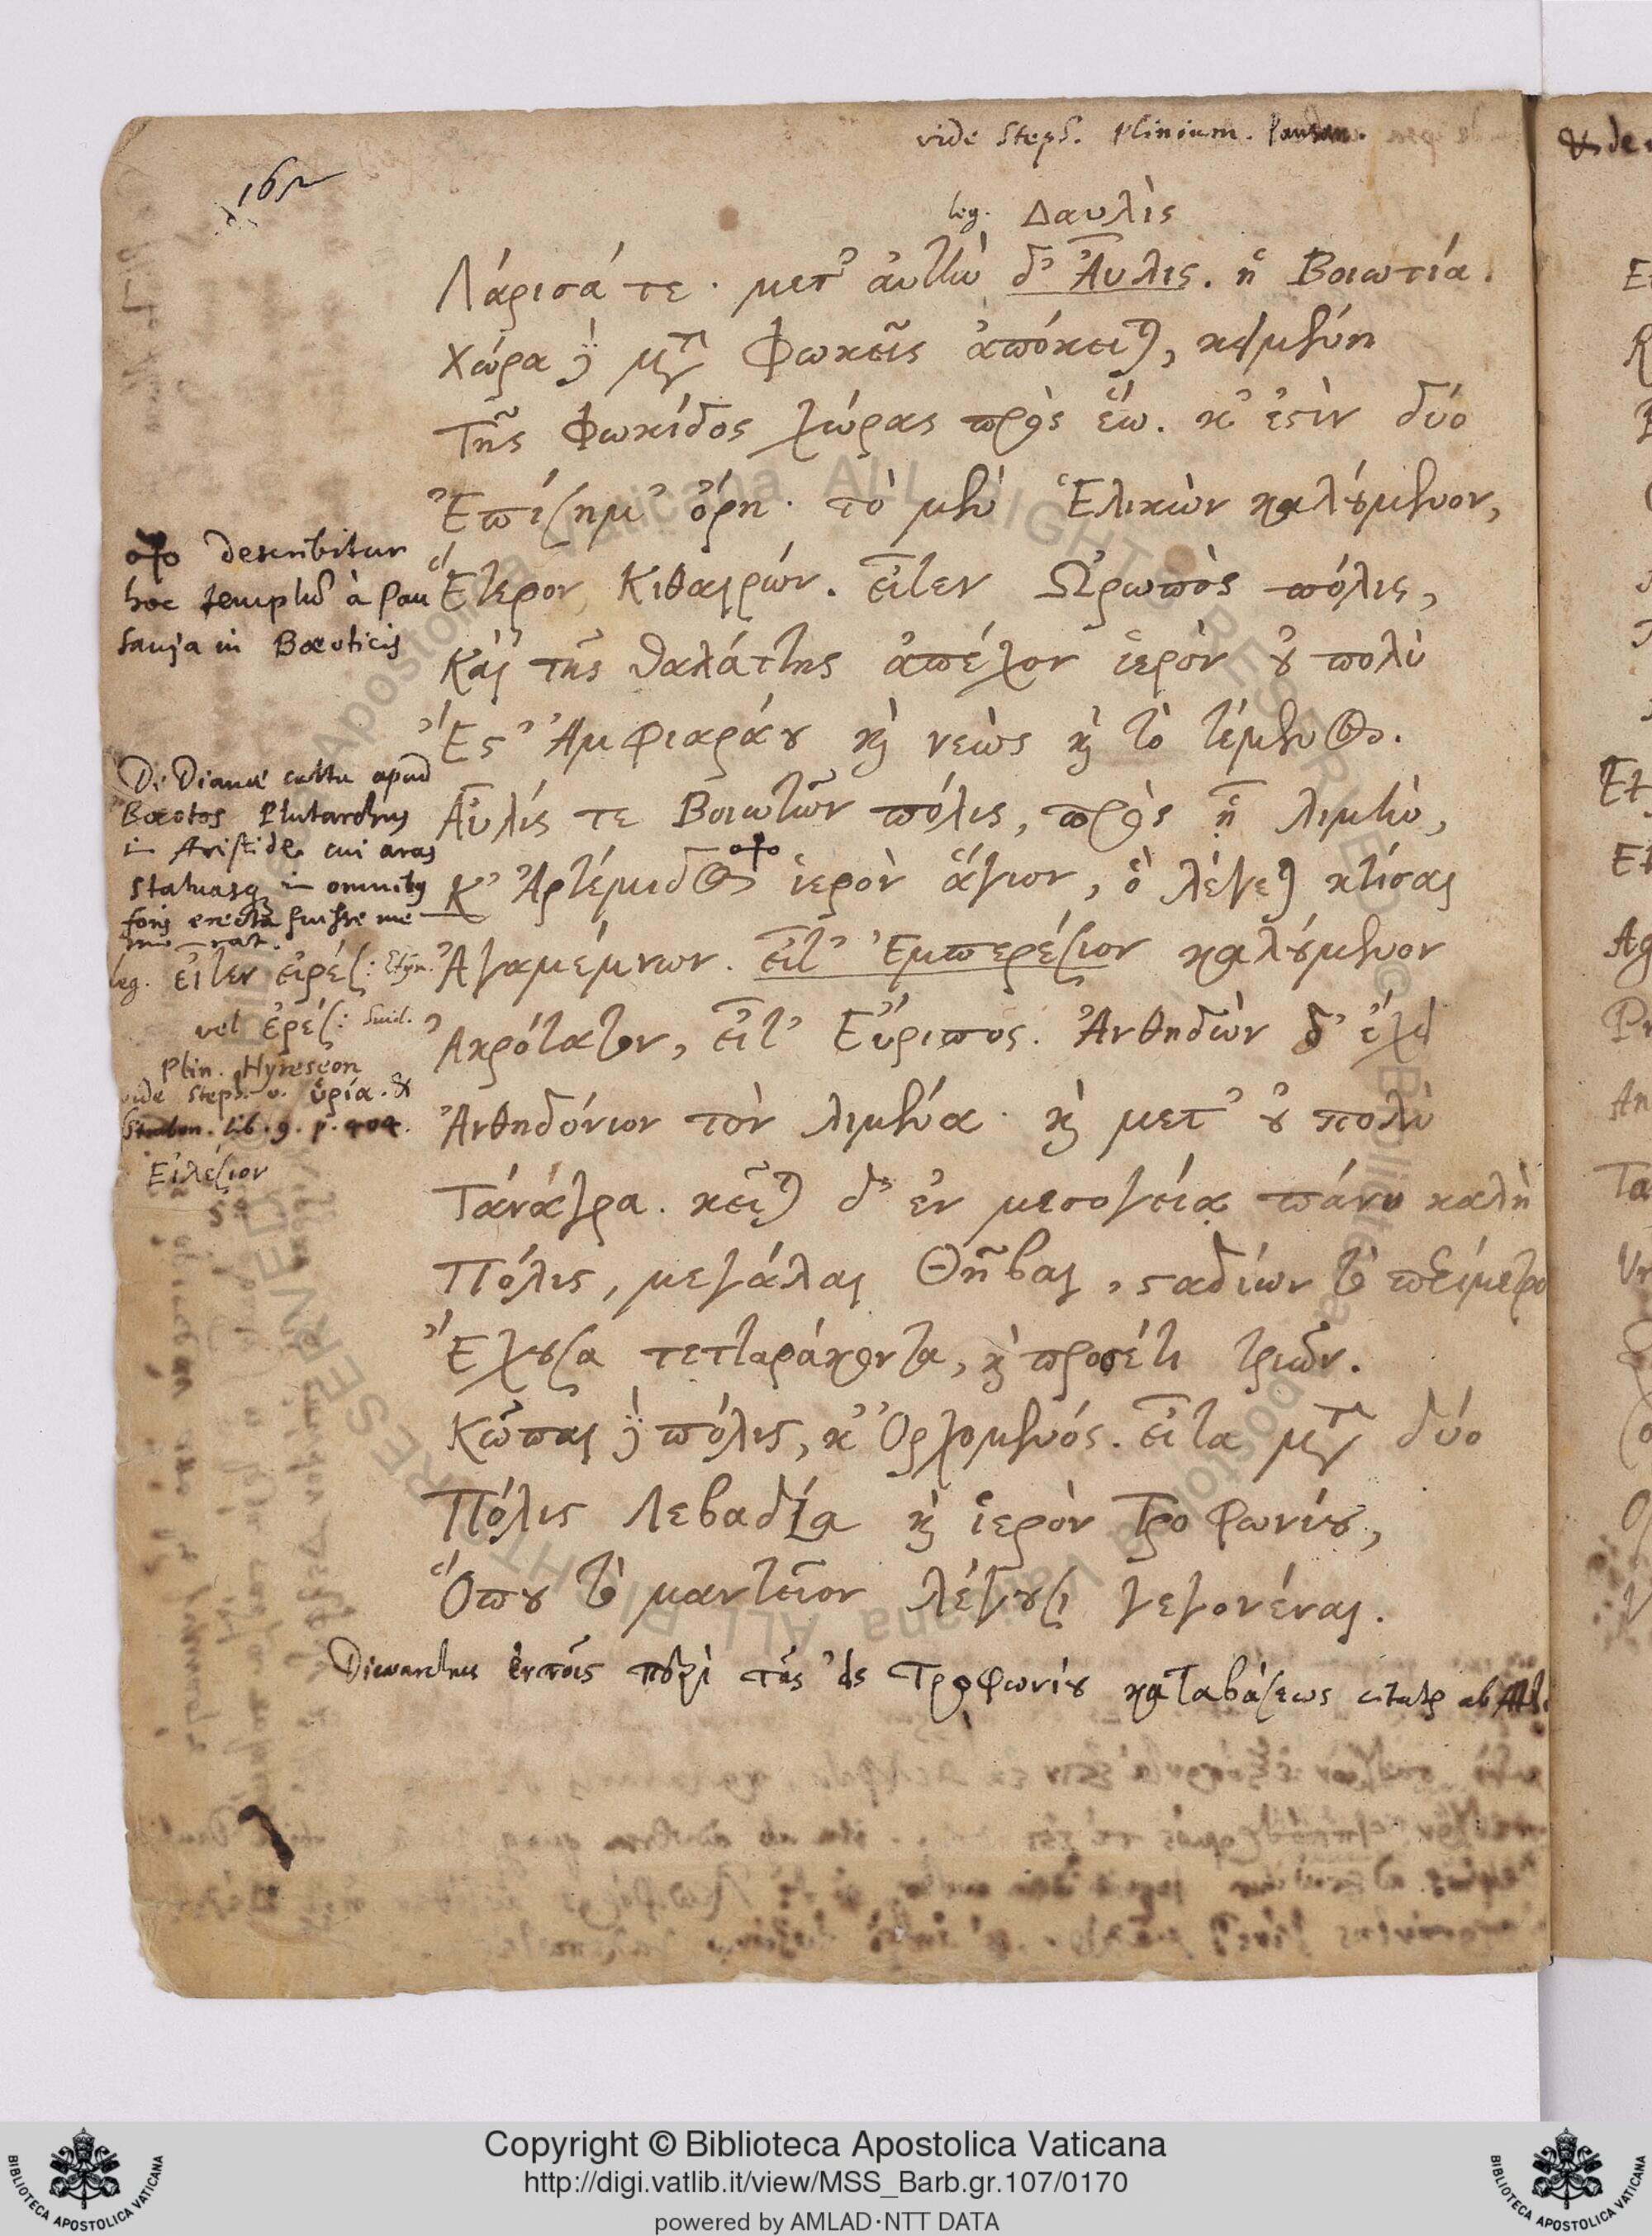 vide Steph. Plinium. Pausan.
165
leg. Δαυλὶς
Λάρισά τε. μετ' αὐτὴν δ' Ἆυλις. ἡ Βοιωτία.
Χώρα δὲ μετὰ Φωκεῖς ἀπόκειται, κειμένη
Τῆς Φωκίδος χώρας πρὸς ἕω. κ' ἐστὶν δύο
Ἐπίσημ' ὄρη. τὸ μὲν Ἑλικὼν καλούμενον,
Ἕτερον Κιθαιρών. εἶτεν Ὠρωπὸς πόλις,
Καὶ τῆς θαλάττης ἀπέχον ἱερὸν οὐ πολὺ
Ἔστ' Ἀμφιαράου καὶ νεὼς καὶ τὸ τέμενος.
Αὖλίς τε Βοιωτῶν πόλις, πρὸς ᾗ λιμὴν,
Κ' Ἀρτέμιδος ἱερὸν ἅγιον, ὃ λέγεται κτίσαι
Ἀγαμέμνων. εἶτ' Ἐμπερέσιον καλούμενον
Ἀκρότατον, εἶτ' Εὔριπος. Ἀνθηδὼν δ' ἔχει
Ἀνθηδόνιον τὸν λιμένα. καὶ μετ' οὐ πολὺ
Τάναγρα. κεῖται δ' ἐν μεσογείᾳ πάνυ καλὴ
Πόλις, μεγάλαι Θῆβαι, σταδίων τὸ περίμετρο
Ἔχουσα τετταράκοντα, καὶ προσέτι τριῶν.
Κῶπαι δὲ πόλις, κ' Ὀρχομενός. εἶτα μετὰ δύο
Πόλις Λεβαδία καὶ ἱερὸν Τροφωνίου,
Ὅπου τὸ μαντεῖον λέγουσι γεγονέναι.
Dicaearchus ἐν τοῖς περὶ τῆς εἰς Τροφωνίου καταβάσεως citatur ab
describitur
hoc templum à Pau
sania in Boeoticis
De Dianae cultu apud
Boeotos Plutarchus
in Aristide cui aras
statuasque in omnibus
foris erectas fuisse me
leg. εἶτεν εἰρέσ: Etym.
vel ἐρέσ: Suid.
Plin. Hyreseon
vide Steph. v. ὑρία. &
Strabon. lib. 9. p. 404.
Εἰλέσιον